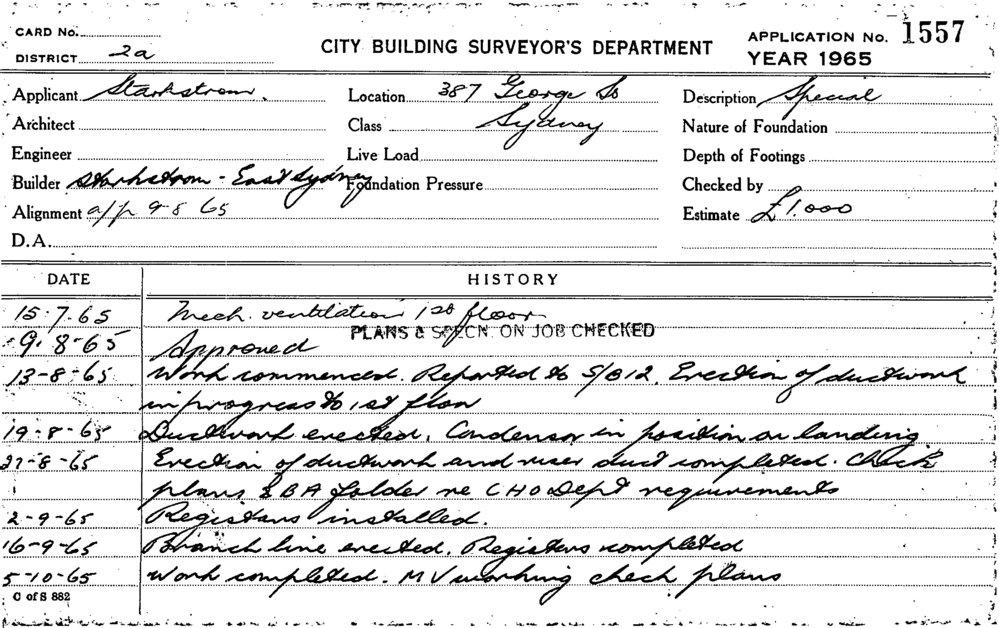 CARD No.
DISTRICT 2a
CITY BUILDING SURVEYOR'S DEPARTMENT
APPLICATION No. 1557
YEAR 1965
Applicant Starkstrom. Location 387 George St Description Special
Architect Class Sydney Nature of Foundation
Engineer Live Load Depth of Footings
Builder Starkstrom - East Sydney Foundation Pressure Checked by
Alignment a/p 9-8 65 Estimate £1.000
D.A.
DATE HISTORY
15-7-65 Mech. ventilation 1st floor
PLANS & SPECN. ON JOB CHECKED
9-8-65 Approved
13-8-65 Work commenced. Reported to S/B12. Erection of ductwork
in progress to 1st floor
19-8-65 Ductwork erected. Condensor in position on landing
27-8-65 Erection of ductwork and riser duct completed. Check
plans & BA folder re CHO Dept requirements
2-9-65 Registers installed.
16-9-65 Branch line erected. Registers completed
5-10-65 Work completed. MV working check plans
C of S 882